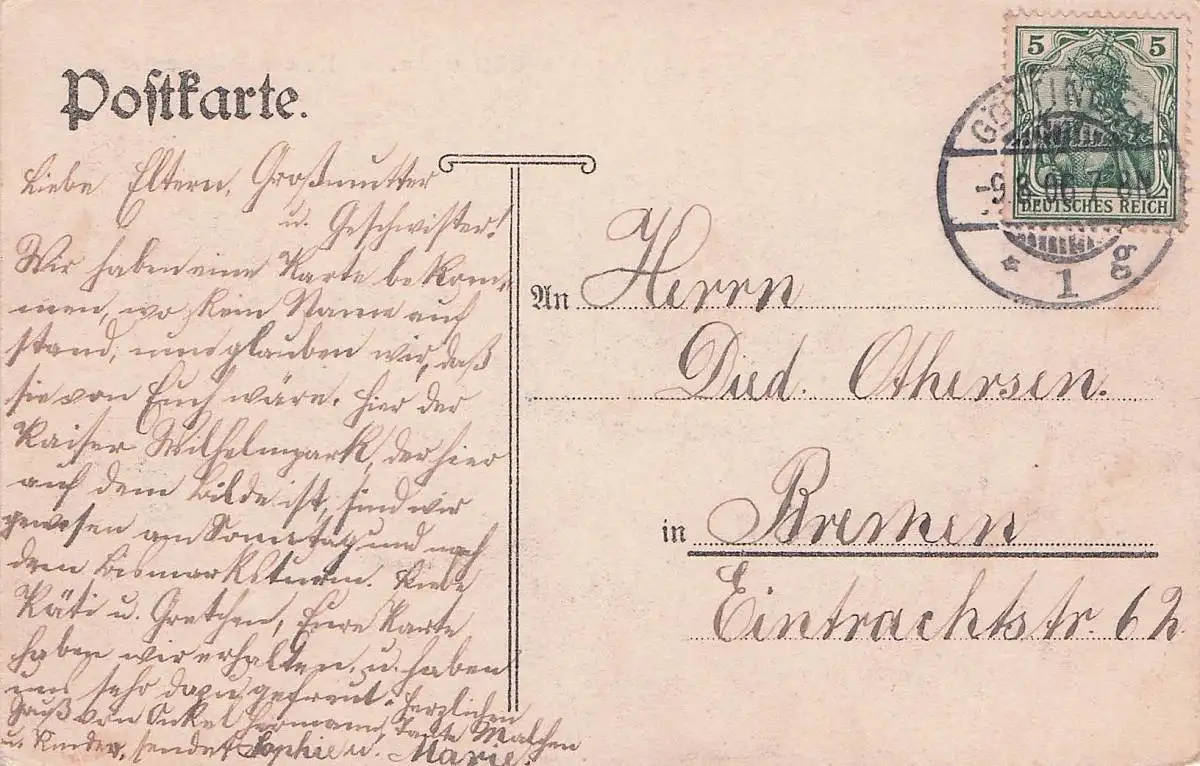 Postkarte.
5 5
DEUTSCHES REICH
GÖTTINGEN
-9.8.06.7-8N
* 1 ga
Liebe Eltern, Großmutter
u. Geschwister!
Wir haben eine Karte bekom-
men, wo kein Name auf
stand, nun glauben wir, daß
sie von Euch wäre. Hier der
Kaiser Wilhelmpark, der hier
auf dem Bilde ist, sind wir
gewesen am Sonntag und nach
dem Bismarksturm. Liebe
Käti u. Gretchen, Eure Karte
haben wir erhalten, u. haben
uns sehr dazu gefreut. Herzlichen
Gruß von Onkel Hermann, Tante Malchen
u. Kinder, sendet Sophie u. Marie.
An Herrn
Died. Othersen.
in Bremen
Eintrachtstr. 62